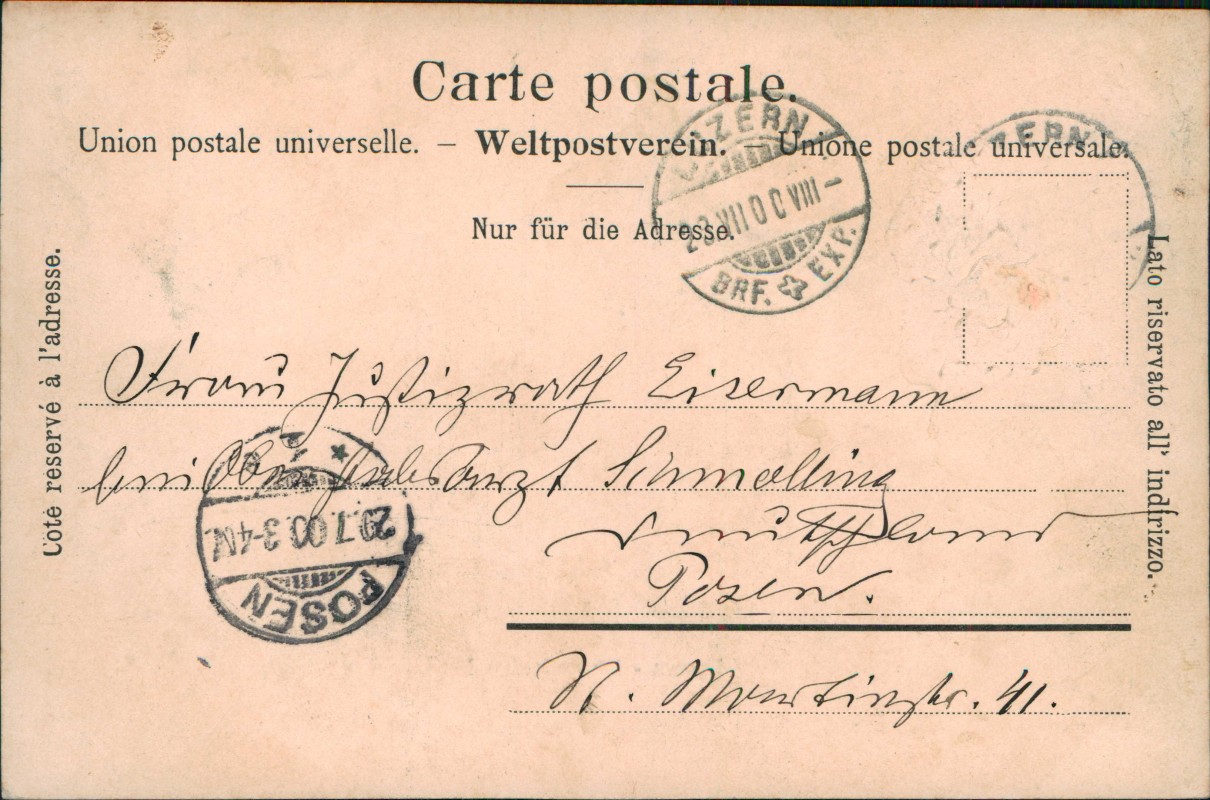 Carte postale.
Union postale universelle. – Weltpostverein. – Unione postale universale.
Nur für die Adresse.
Coté reservé à l'adresse.
Lato riservato all' indirizzo.
LUZERN
VII 00 VIII –
BRF. EXP.
ZERN
Frau Justizrath Eisermann
bei Oberstabsarzt Schmolling
Deutschland
Posen.
St. Martinstr. 41.
* 1
29.7.00.3-4N.
POSEN